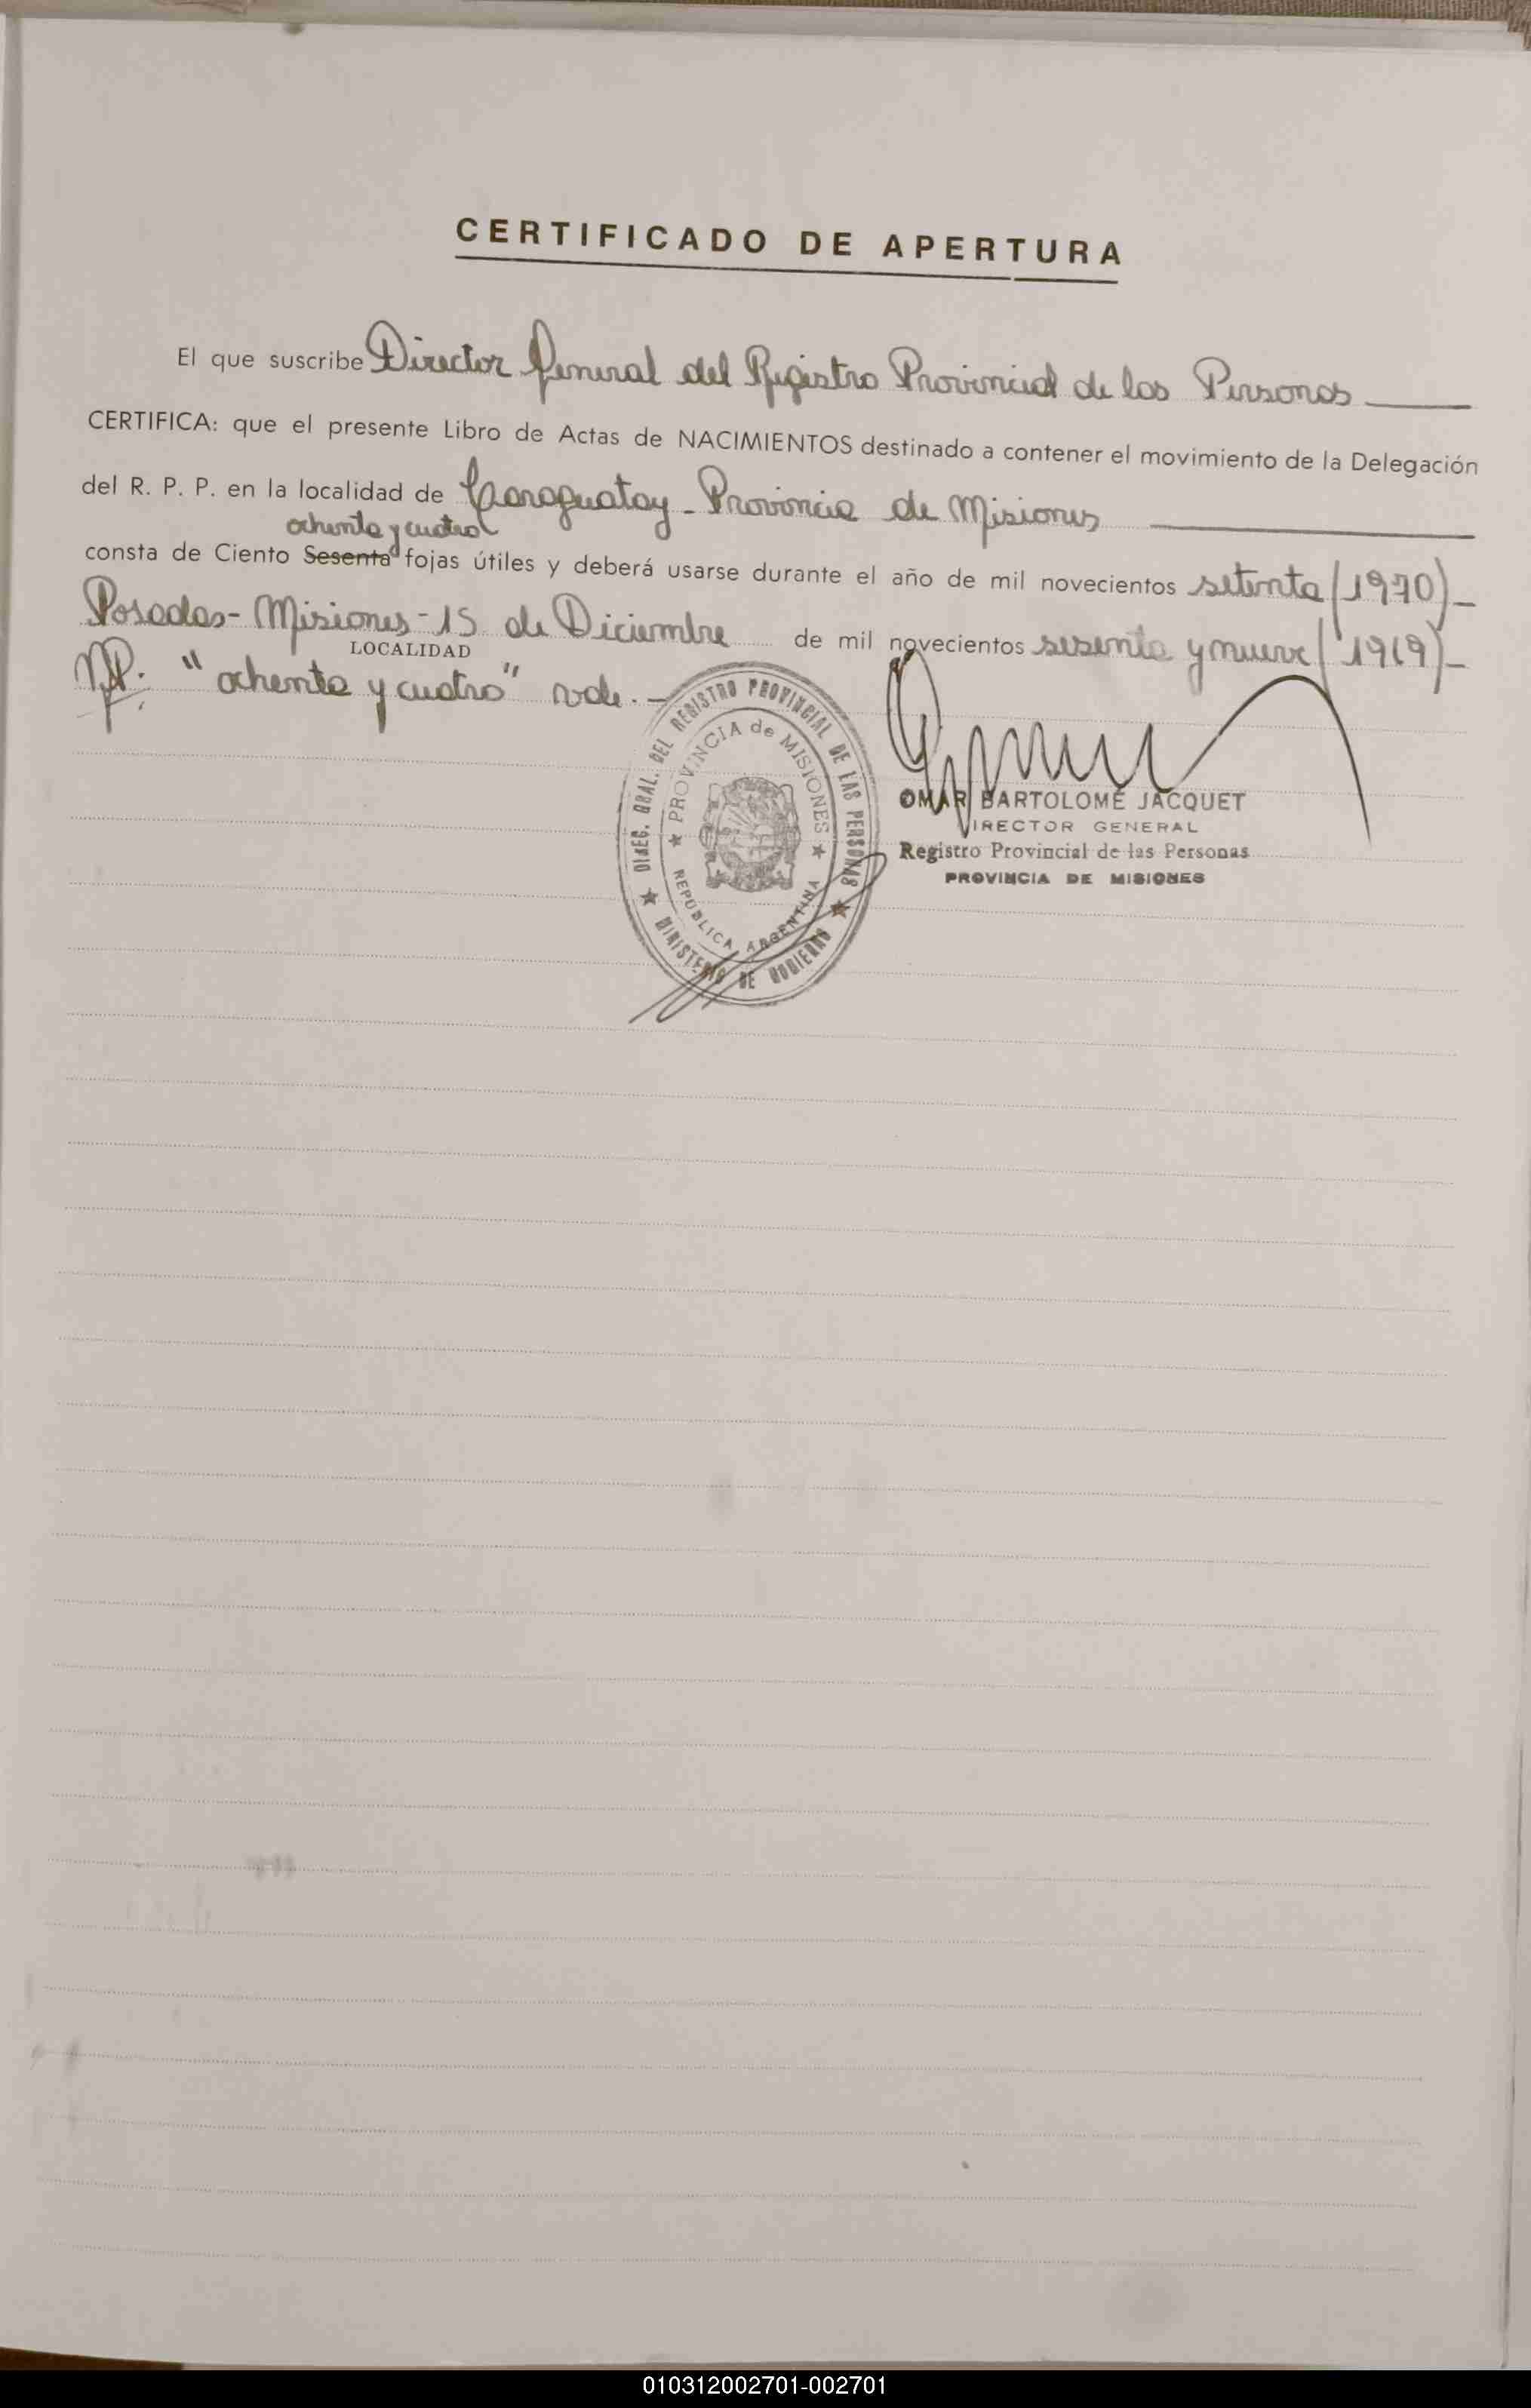 CERTIFICADO DE APERTURA
El que suscribe Director General del Registro Provincial de las Personas
CERTIFICA: que el presente Libro de Actas de NACIMIENTOS destinado a contener el movimiento de la Delegación
del R. P. P. en la localidad de Caraguatay - Provincia de Misiones
ochenta y cuatro
consta de Ciento Sesenta fojas útiles y deberá usarse durante el año de mil novecientos setenta (1970)-
Posadas - Misiones - 15 de Diciembre de mil novecientos sesenta y nueve (1969)-
LOCALIDAD
"ochenta y cuatro" vale.-
DIREC. GRAL. DEL REGISTRO PROVINCIAL DE LAS PERSONAS
PROVINCIA de MISIONES
REPUBLICA ARGENTINA
MINISTERIO DE GOBIERNO
OMAR BARTOLOMÉ JACQUET
DIRECTOR GENERAL
Registro Provincial de las Personas
PROVINCIA DE MISIONES
010312002701-002701